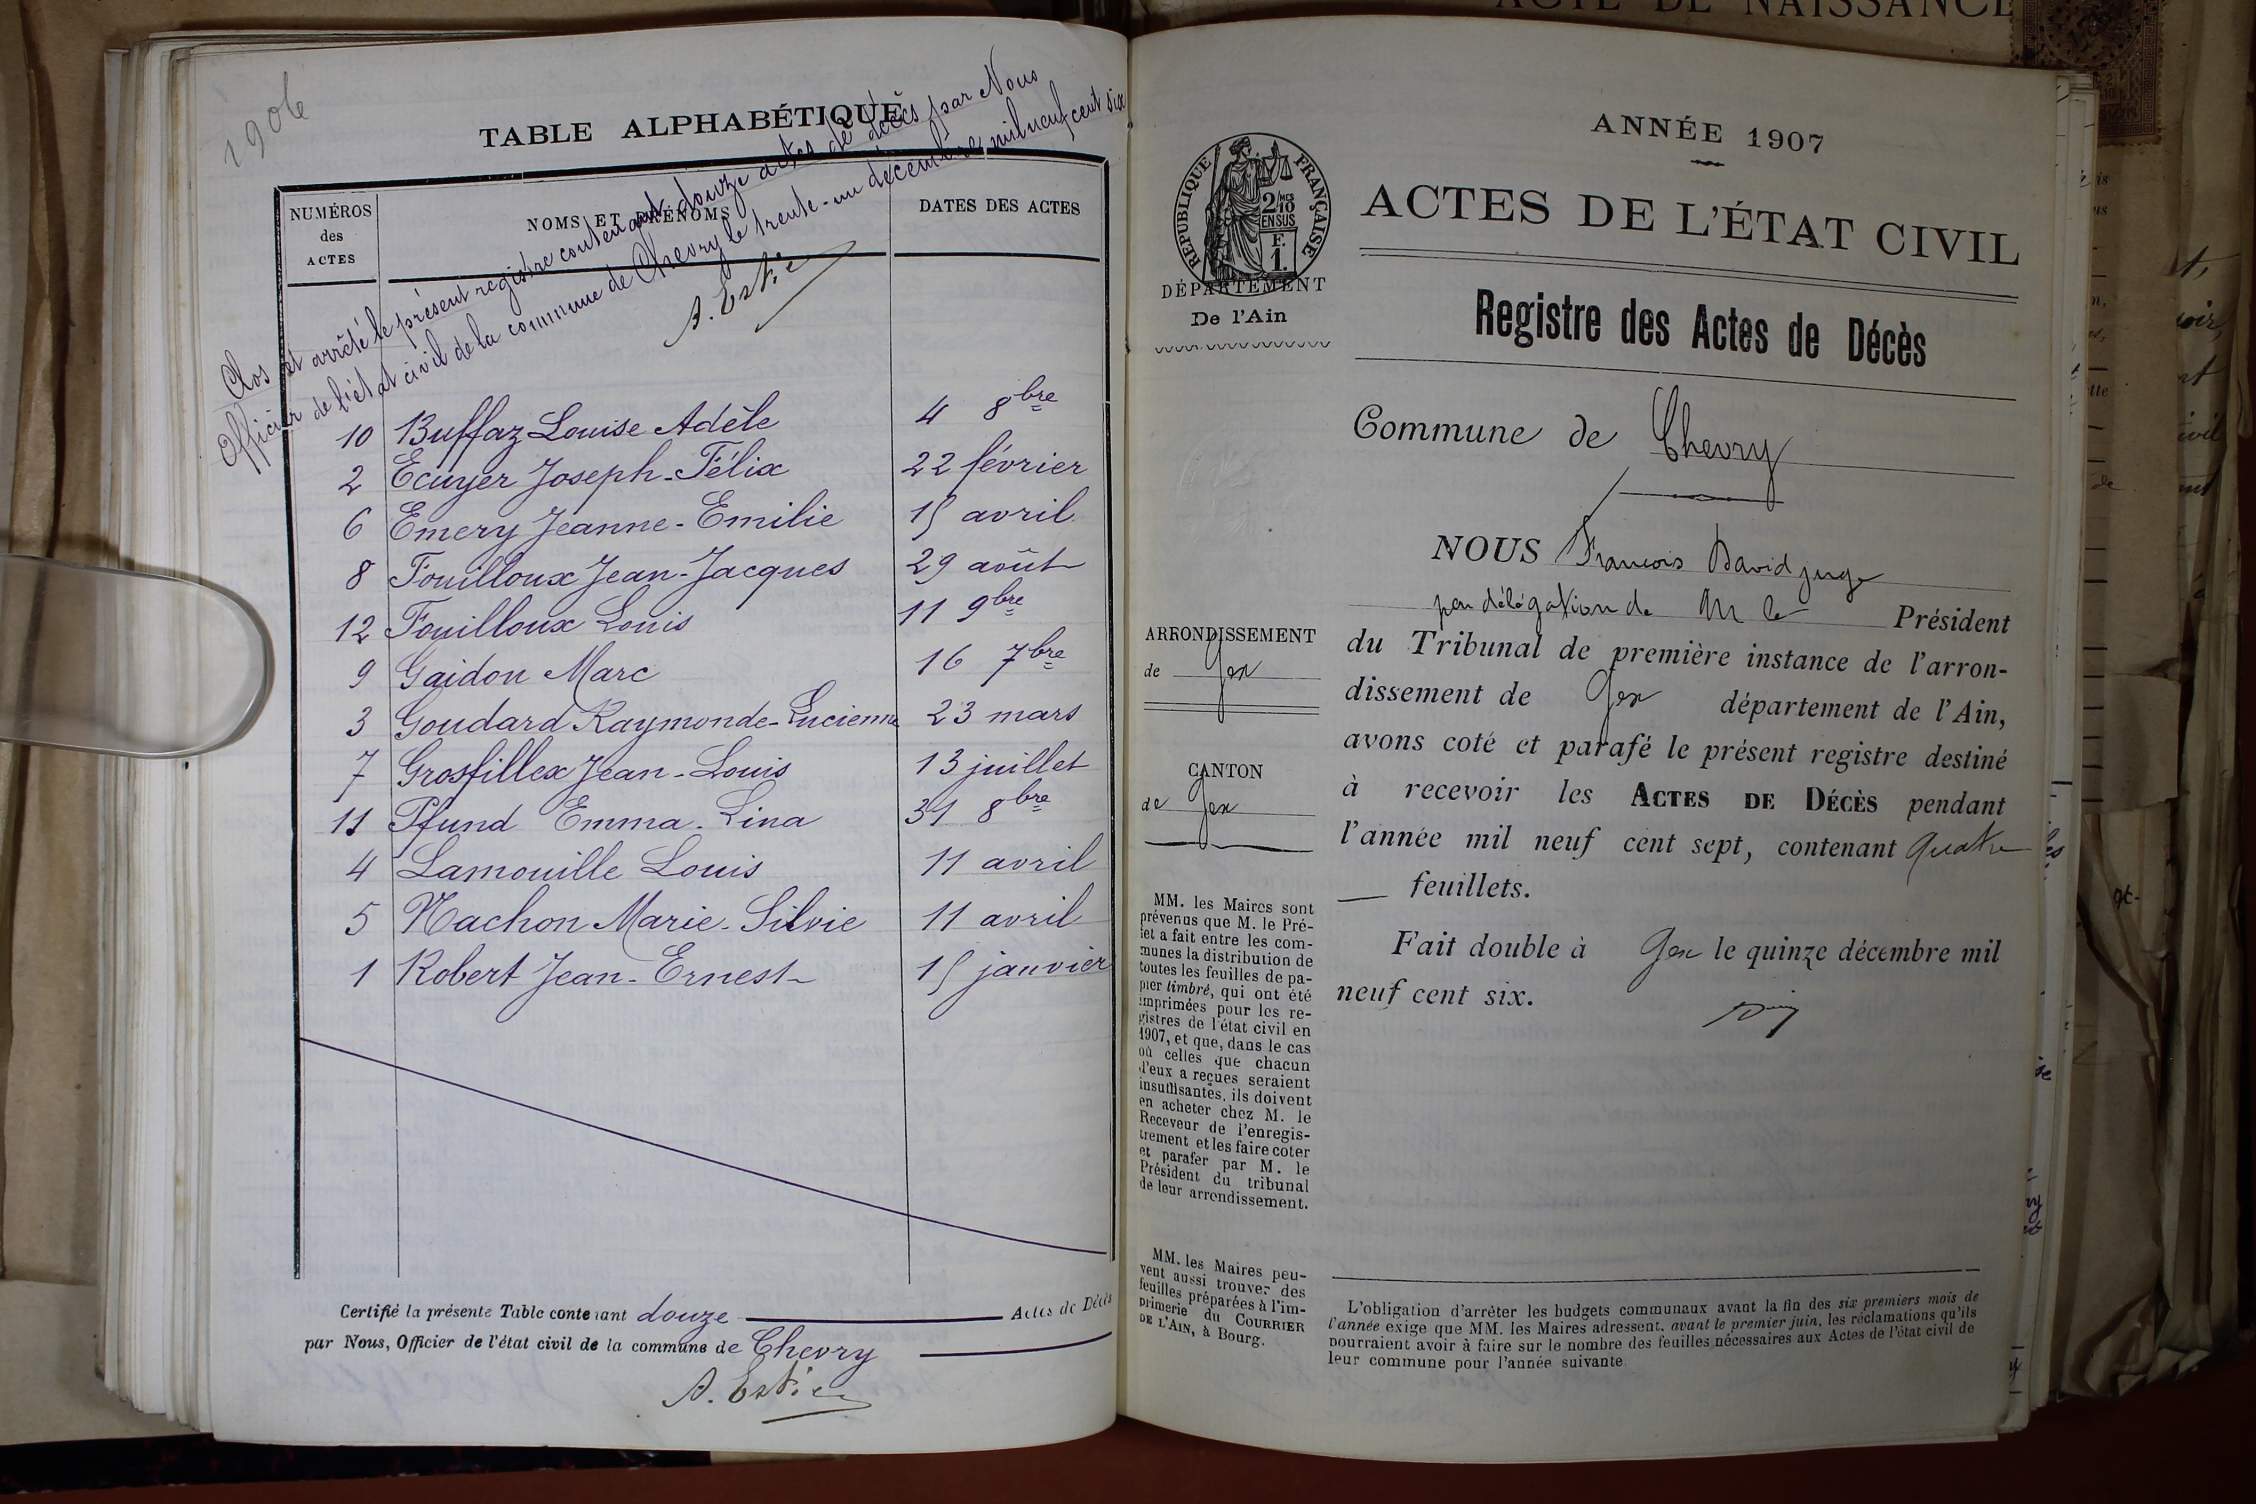 ACTE DE NAISSANCE
1906
TABLE ALPHABÉTIQUE
Clos et arrêté le présent registre contenant douze actes de décès par Nous
Officier de l'état civil de la commune de Chevry le trente-un décembre mil neuf cent six
A. Estie
NUMÉROS
des
ACTES
NOMS ET PRÉNOMS
DATES DES ACTES
10 Buffaz Louise Adèle 4 8bre
2 Ecuyer Joseph-Félix 22 février
6 Emery Jeanne-Emilie 15 avril
8 Fouilloux Jean-Jacques 29 août
12 Fouilloux Louis 11 9bre
9 Gaidon Marc 16 7bre
3 Goudard Raymonde-Lucienne 23 mars
7 Grosfillex Jean-Louis 13 juillet
11 Pfund Emma-Lina 31 8bre
4 Lamouille Louis 11 avril
5 Machon Marie-Silvie 11 avril
1 Robert Jean-Ernest 15 janvier
Certifié la présente Table contenant douze Actes de Décès
par Nous, Officier de l'état civil de la commune de Chevry
A. Estie
ANNÉE 1907
ACTES DE L'ÉTAT CIVIL
RÉPUBLIQUE FRANÇAISE
2/10 MES
EN SUS
F.
1.
DÉPARTEMENT
De l'Ain
Registre des Actes de Décès
Commune de Chevry
NOUS François David juge
par délégation de M le Président
du Tribunal de première instance de l'arron-
dissement de Gex département de l'Ain,
avons coté et parafé le présent registre destiné
à recevoir les ACTES DE DÉCÈS pendant
l'année mil neuf cent sept, contenant quatre
feuillets.
Fait double à Gex le quinze décembre mil
neuf cent six.
ARRONDISSEMENT
de Gex
CANTON
de Gex
MM. les Maires sont
prévenus que M. le Pré-
fet a fait entre les com-
munes la distribution de
toutes les feuilles de pa-
pier timbré, qui ont été
imprimées pour les re-
gistres de l'état civil en
1907, et que, dans le cas
où celles que chacun
d'eux a reçues seraient
insuffisantes, ils doivent
en acheter chez M. le
Receveur de l'enregis-
trement et les faire coter
et parafer par M. le
Président du tribunal
de leur arrondissement.
MM. les Maires peu-
vent aussi trouver des
feuilles préparées à l'im-
primerie du COURRIER
DE L'AIN, à Bourg.
L'obligation d'arrêter les budgets communaux avant la fin des six premiers mois de
l'année exige que MM. les Maires adressent, avant le premier juin, les réclamations qu'ils
pourraient avoir à faire sur le nombre des feuilles nécessaires aux Actes de l'état civil de
leur commune pour l'année suivante